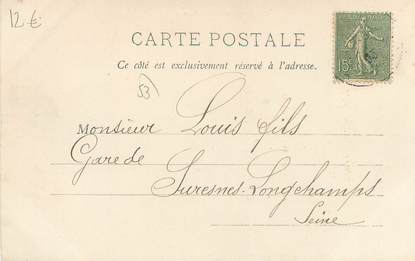 12 €
CARTE POSTALE
Ce côté est exclusivement réservé à l'adresse.
15c
53)
Monsieur Louis fils
Gare de
Suresnes-Longchamps
Seine